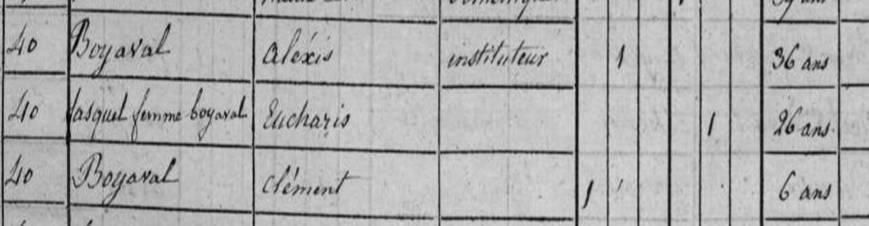 40 Boyaval aléxis instituteur 1 36 ans
40 femme boyaval Eucharis 1 26 ans
40 Boyaval Clément 1 6 ans